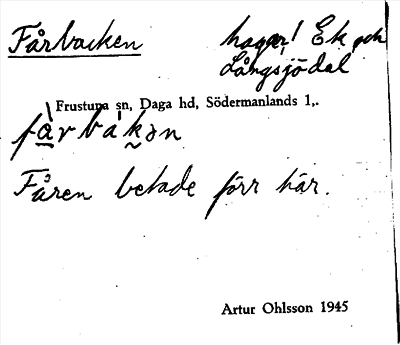 Fårbacken
hagar! Ek och
Långsjödal
Frustuna sn, Daga hd, Södermanlands l,.
fà̱rbák̰ən
Fåren betade förr här.
Artur Ohlsson 1945